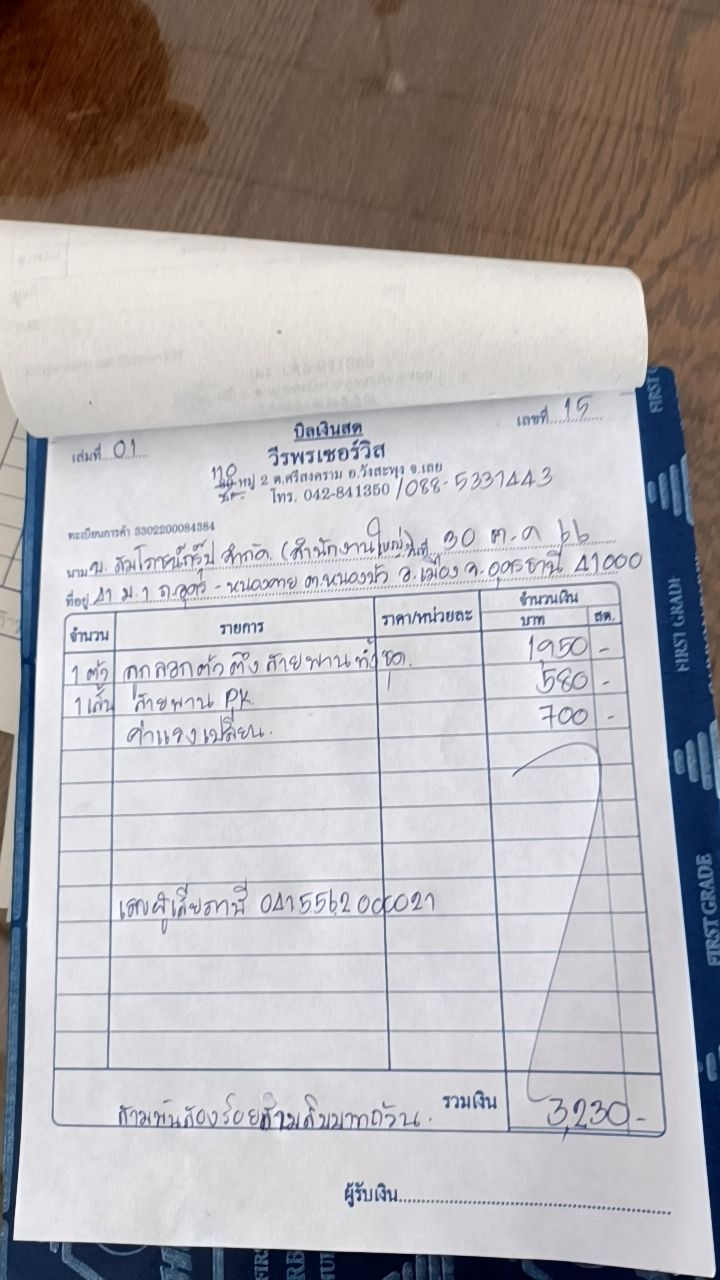 บิลเงินสด
เล่มที่ 01 เลขที่ 15
วีรพรเซอร์วิส
110 หมู่ 2 ต.ศรีสงคราม อ.วังสะพุง จ.เลย
โทร. 042-841350 /088-5331443
ทะเบียนการค้า 3302200084384
นาม บ. สัมโภชน์กรุ๊ป จำกัด (สำนักงานใหญ่) วันที่ 30 ต.ค 66
ที่อยู่ 41 ม.1 ถ.อุดร - หนองคาย ต.หนองบัว อ.เมือง จ.อุดรธานี 41000
จำนวน รายการ ราคา/หน่วยละ จำนวนเงิน
บาท สต.
1 ตัว ลูกลอกตัวตึงสายพานทั้งชุด. 1,950 -
1 เส้น สายพาน PK. 580 -
ค่าแรงเปลี่ยน. 700 -
เลขผู้เสียภาษี 0415562000021
สามพันสองร้อยสามสิบบาทถ้วน. รวมเงิน 3,230 -
ผู้รับเงิน
FIRST GRADE
FIRST GRADE